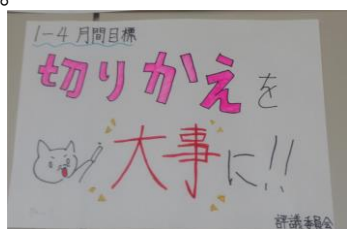 1-4 月間目標
切りかえを
大事に!!
評議委員会